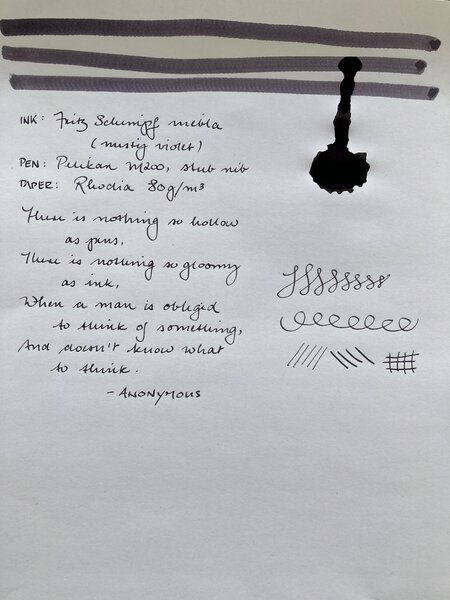 INK: Fritz Schimpf nebla
(misty violet)
PEN: Pelikan M200, stub nib
PAPER: Rhodia 80g/m³
There is nothing so hollow
as pens,
There is nothing so gloomy
as ink,
When a man is obliged
to think of something,
And doesn't know what
to think.
- ANONYMOUS